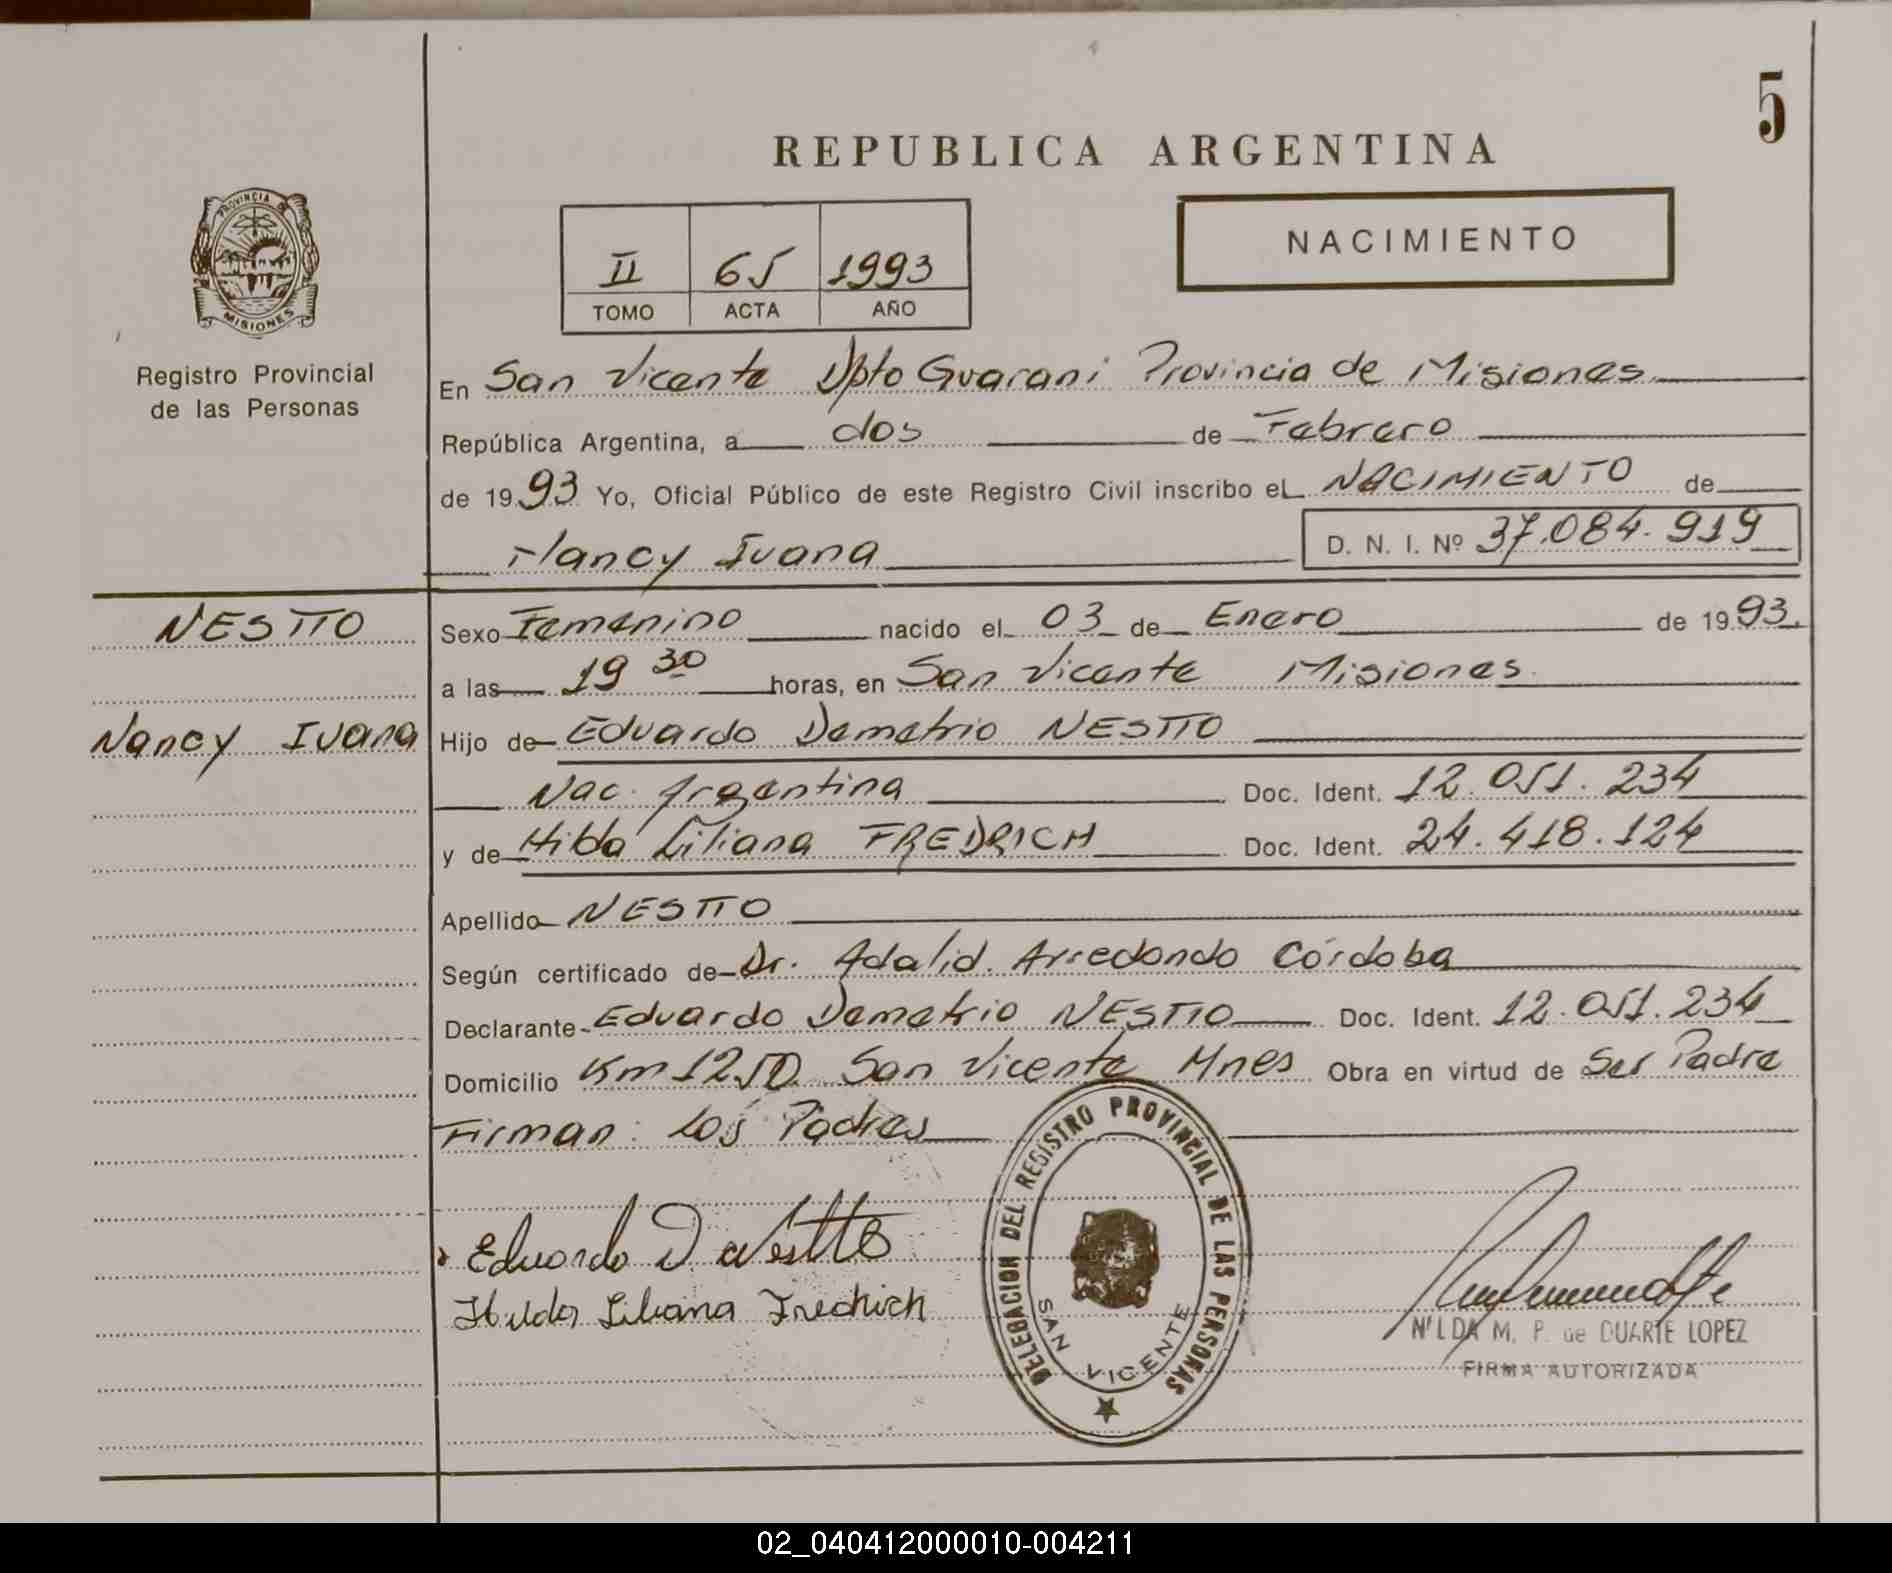 5
REPUBLICA ARGENTINA
PROVINCIA DE
MISIONES
Registro Provincial
de las Personas
II 65 1993
TOMO ACTA AÑO
NACIMIENTO
En San Vicente Dpto Guarani Provincia de Misiones
República Argentina, a dos de Febrero
de 1993 Yo, Oficial Público de este Registro Civil inscribo el NACIMIENTO de
Nancy Ivana D. N. I. Nº 37.084.919
NESTTO
Nancy Ivana
Sexo Femenino nacido el 03 de Enero de 1993.
a las 19 30 horas, en San Vicente Misiones
Hijo de Eduardo Demetrio NESTTO
Nac. Argentina Doc. Ident. 12.051.234
y de Hilda Liliana FREDRICH Doc. Ident. 24.418.124
Apellido NESTTO
Según certificado de Dr. Adalid. Arredondo Córdoba
Declarante Eduardo Demetrio NESTTO Doc. Ident. 12.051.234
Domicilio Km 1250 San Vicente Mnes Obra en virtud de Ser Padre
Firman: Los Padres
Eduardo D. Nestto
Hilda Liliana Fredrich
DELEGACION DEL REGISTRO PROVINCIAL DE LAS PERSONAS
SAN VICENTE
NILDA M. P. de DUARTE LOPEZ
FIRMA AUTORIZADA
02_040412000010-004211